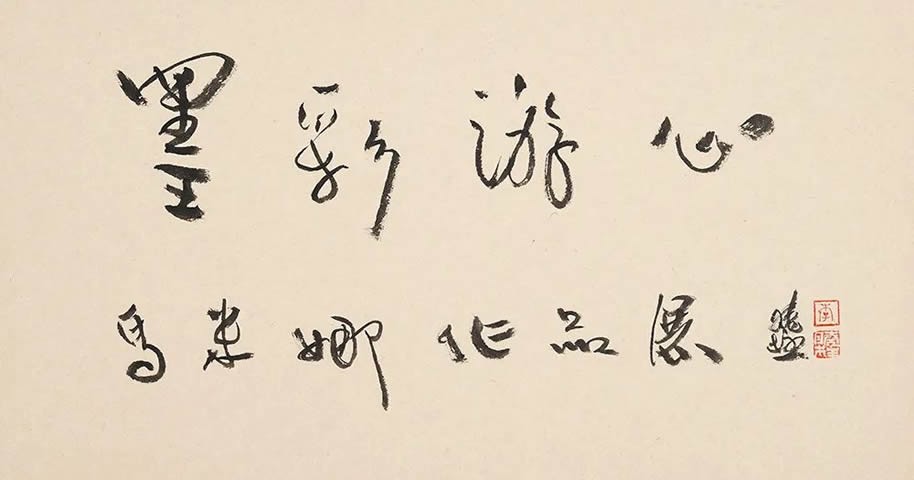 墨彩游心
烏米娜作品展